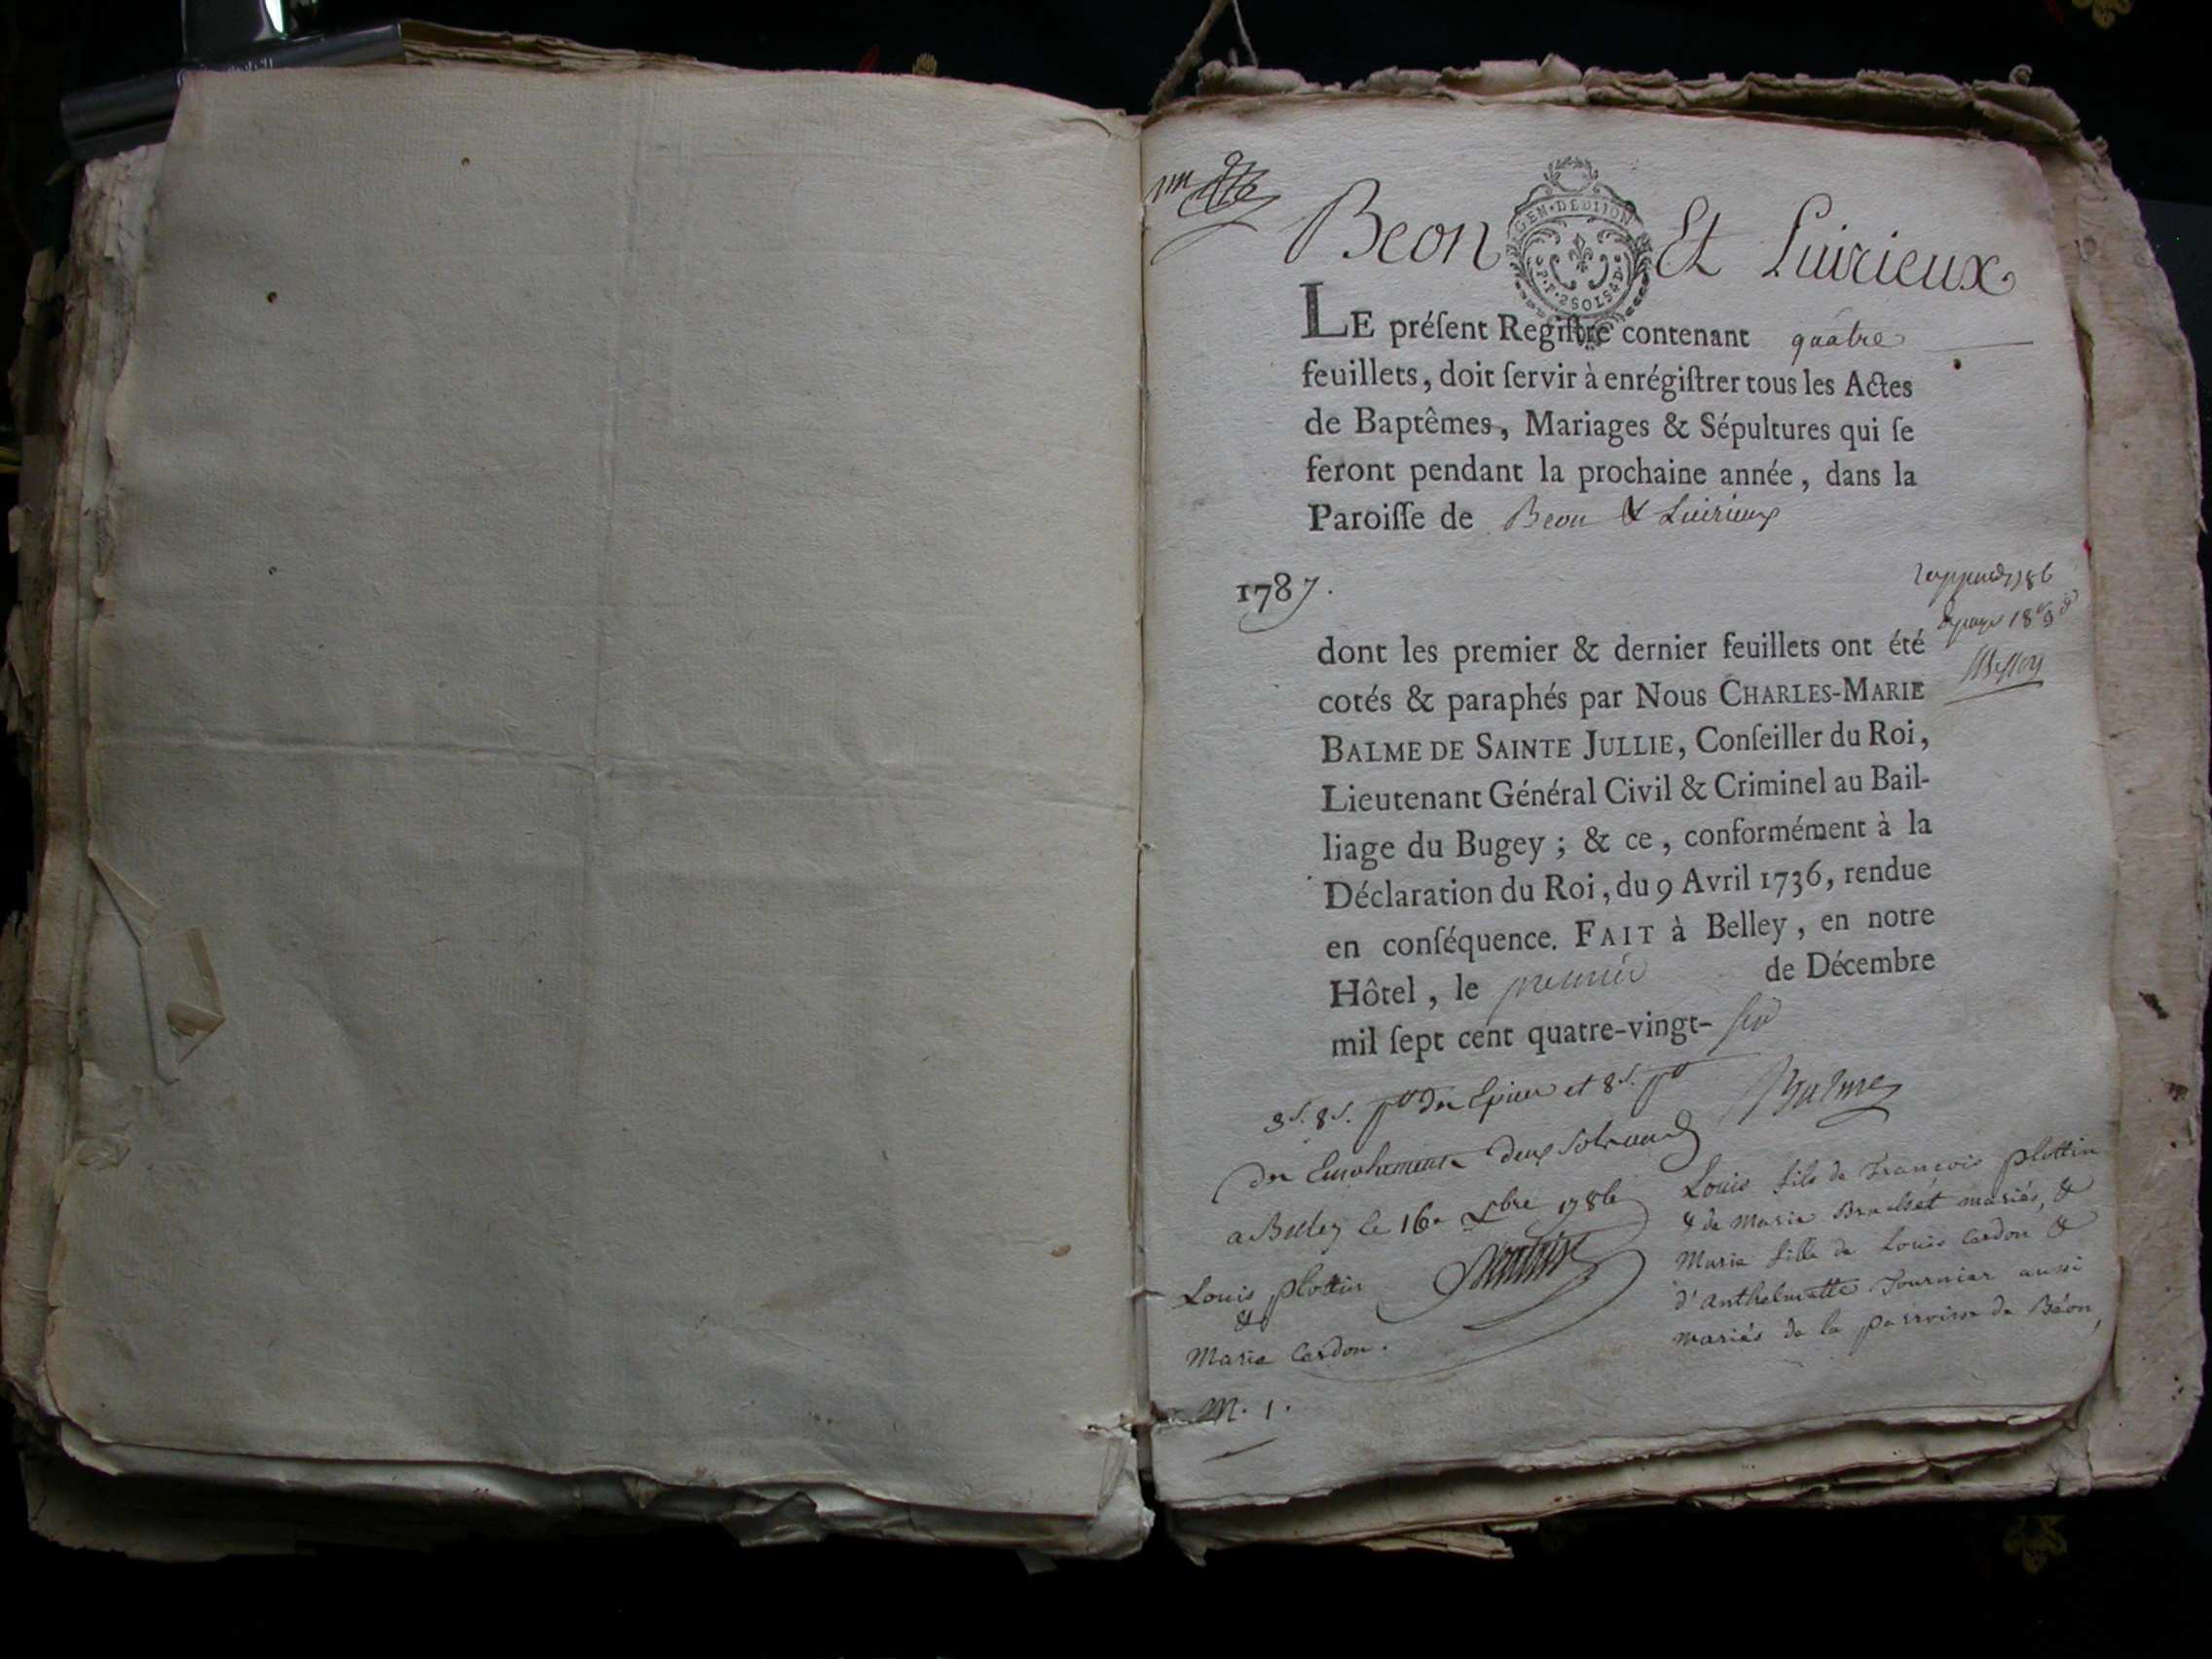 Beon Et Luirieux
GEN·DEDIJON
P.P. 2SOLS4D
LE préſent Regiſtre contenant quatre
feuillets, doit ſervir à enrégiſtrer tous les Actes
de Baptêmes, Mariages & Sépultures qui ſe
feront pendant la prochaine année, dans la
Paroiſſe de Beon & Luirieux
1787.
dont les premier & dernier feuillets ont été
cotés & paraphés par Nous CHARLES-MARIE
BALME DE SAINTE JULLIE, Conſeiller du Roi,
Lieutenant Général Civil & Criminel au Bail-
liage du Bugey ; & ce, conformément à la
Déclaration du Roi, du 9 Avril 1736, rendue
en conſéquence. FAIT à Belley, en notre
Hôtel, le premier de Décembre
mil ſept cent quatre-vingt-six
Balme
a Belley le 16e Xbre 1786
Louis plottin
&
Marie Cardon.
M. 1.
Louis fils de François plottin
& de Marie mariés, &
Marie fille de Louis Cardon &
d'Anthelmette Fournier aussi
mariés de la parroisse de Béon,